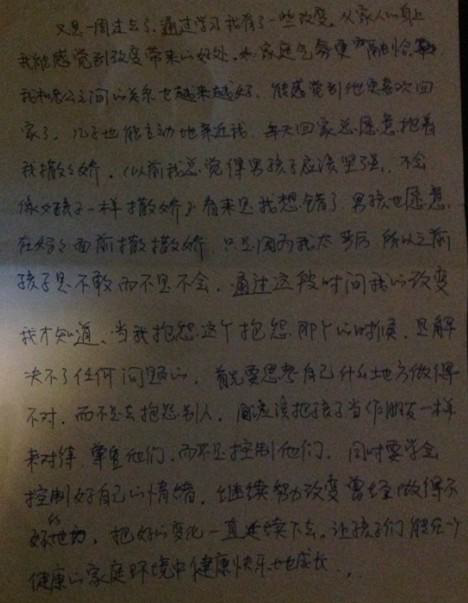 又是一周过去了,通过学习我有了一些改变,从家人的身上
我能感觉到改变带来的好处,如家庭气氛更融洽,
我和老公之间的关系也越来越好,能感觉到他更喜欢回
家了,儿子也能主动地亲近我,每天回家总愿意抱着
我撒撒娇,(以前我总觉得男孩子应该坚强,不会
像女孩子一样撒娇)看来是我想错了男孩也愿意
在妈妈面前撒撒娇,只是因为我太严厉,所以之前
孩子是不敢而不是不会,通过这段时间我的改变
我才知道,当我抱怨这个抱怨那个的时候,是解
决不了任何问题的,首先要思考自己什么地方做得
不对,而不是去抱怨别人,应该把孩子当作朋友一样
来对待,尊重他们,而不是控制他们,同时要学会
控制好自己的情绪,继续努力改变曾经做得不
好的地方,把好的变化一直延续下去,让孩子们能在一个
健康的家庭环境中健康快乐地成长...